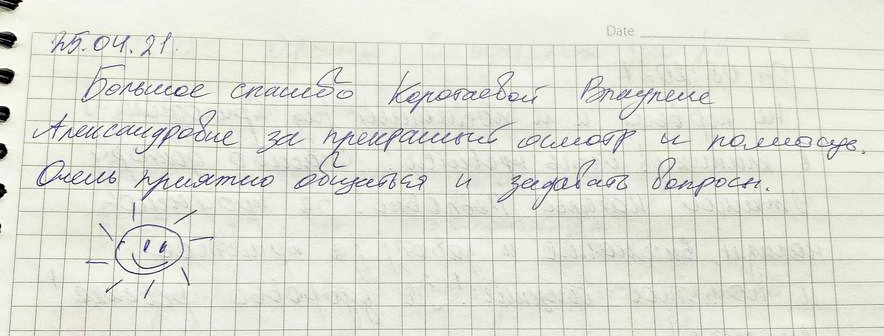 Date
25.04.21.
Большое спасибо Коротаевой
Александровне за прекрасный осмотр и помощь.
Очень приятно общаться и задавать вопросы.